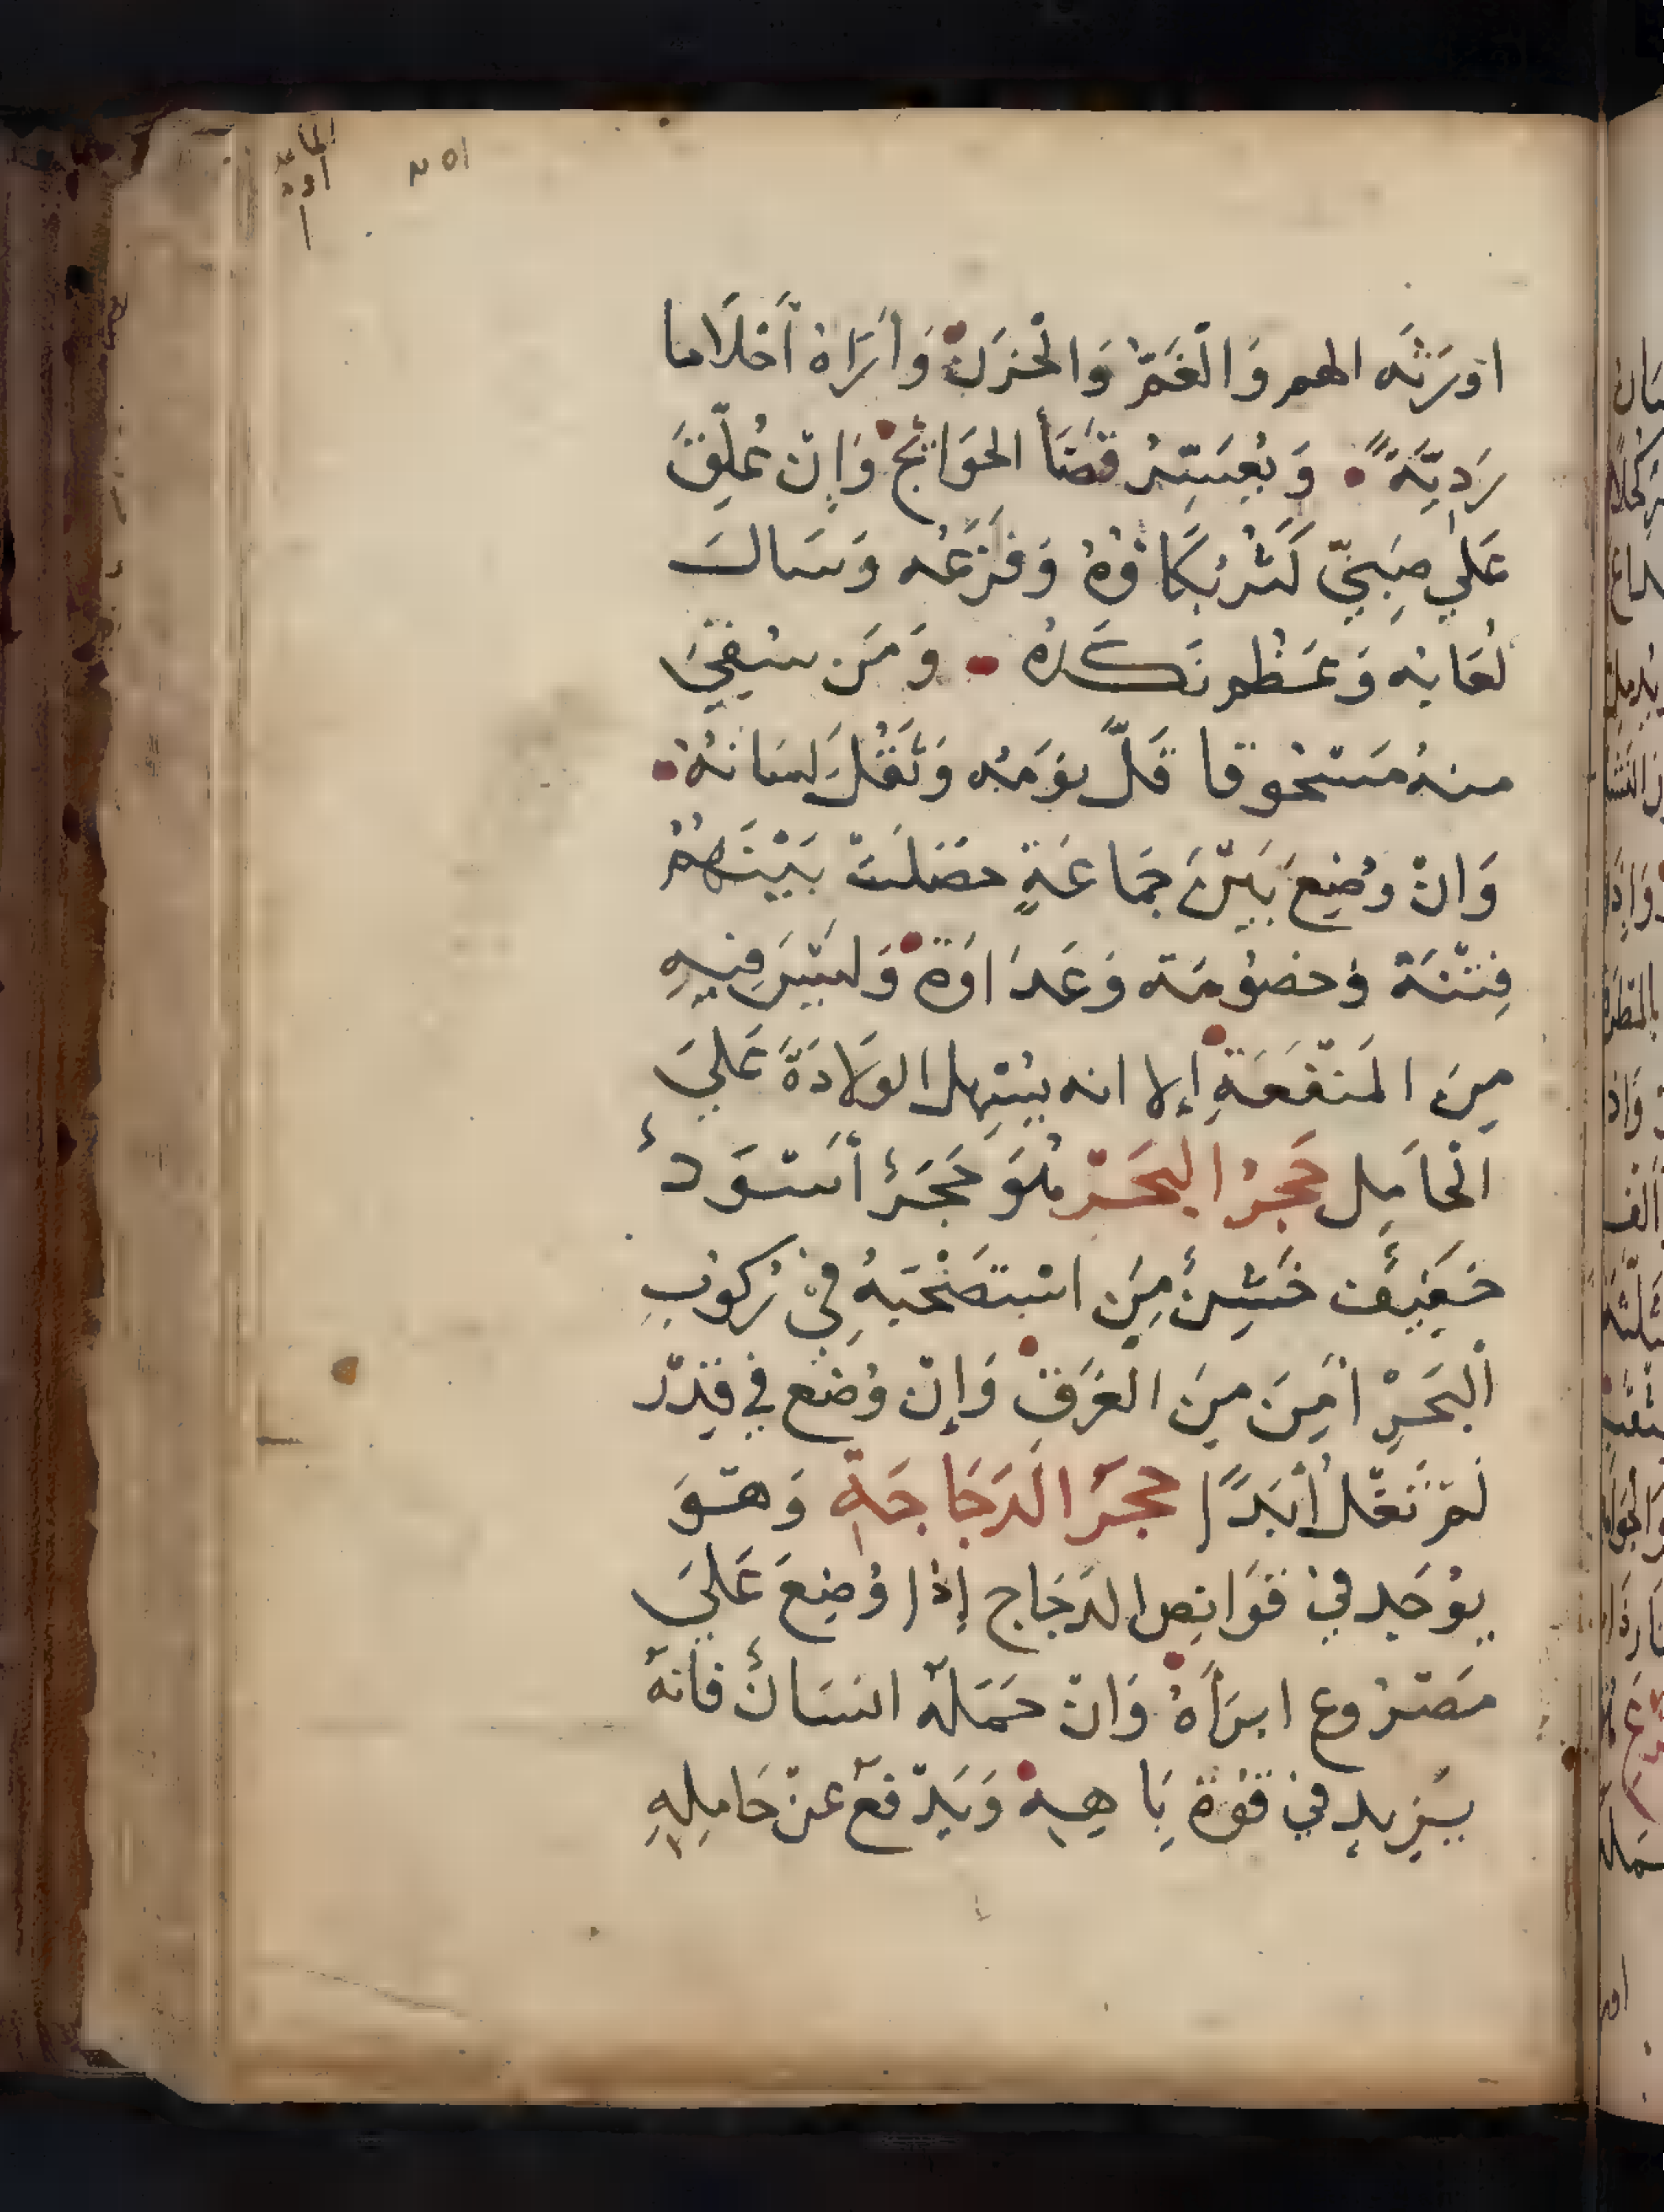 اورَثَه الهم وَالْغَمّ وَالْحزَنْ وَأرَاهُ أَحْلَاما
رَدِيَّةً . وَيُعَسِّرُ قَضَأ الحَوَائِجْ وَإِنْ عُلِّقَ
عَلَى صَبِيّ كَثُر بُكَاؤهُ وَفَزَعُه وَسَالَ
لُعَابُه وَعَظُم نَكَدُهُ . وَمَن سُقِيَ
منهُ مَسْحُوقا قَلَّ نوْمُه وَثَقُلَ لِسَانُهُ .
وَانْ وضِعَ بَيْنَ جَمَاعَةٍ حصَلَتْ بَيْنَهُمْ
فِتْنَة وخصُومَة وَعَدَاوَةْ وَلَيْسَ فِيهِ
مِنَ المَنْفَعَةِ إلا انه يُسَهِل الوَلَادَةَ عَلَى
الْحَامِل حَجَرُ البَحَرْ هُوَ حَجَرٌ أَسْوَدٌ
خَفِيفٌ خَشِنٌ مِنَ اسْتَصْحَبهُ فِيْ رُكُوبِ
الْبَحَرْ أَمِنَ مِنَ الغَرَقْ وَإِنْ وُضع في قِدْر
لَمْ تَغْل أَبَدًا حَجَرَ الدَجَاجَةِ وَهْوَ
يوُجَد فيْ قَوَانِص الدَجَاج إذا وُضِعَ عَلَى
مَصْرُوع ابرَأهُ وَانْ حَمَلَهْ انسَانٌ فانهْ
يَزِيد فيْ قوُة بَاهِهِ وَيَدْفعْ عَنْ حَامِلِهِ